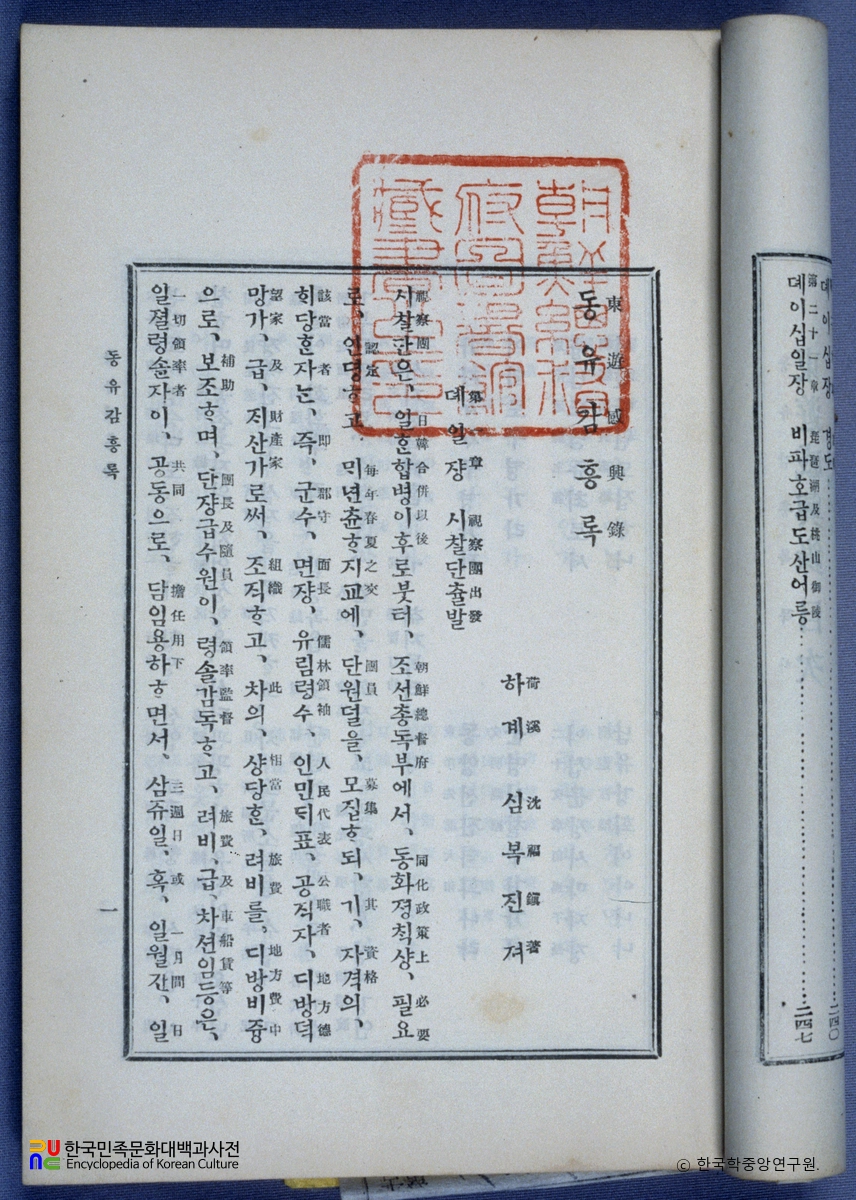 뎨이십장 경도……二四〇
第二十一章 琵琶湖及桃山御陵
뎨이십일장 비파호급도산어릉……二四七
朝鮮總督
府圖書館
藏書之印
東遊感興錄
동유감흥록
荷溪 沈福鎭著
하계 심복진 져
第一章 視察團出發
뎨일쟝 시찰단츌발
視察團 日韓合併以後 朝鮮總督府 同化政策上 必要
시찰단은, 일한합병이후로붓터, 조션총독부에서, 동화졍칙샹, 필요
認定 每年春夏之交 團員 募集 其 資格
로, 인뎡ᄒᆞ고, ᄆᆡ년츈ᄒᆞ지교에, 단원덜을, 모집ᄒᆞ되, 기, 자격의,
該當者 即 郡守 面長 儒林領袖 人民代表 公職者 地方德
ᄒᆡ당ᄒᆞᆫ자ᄂᆞᆫ, 즉, 군수, 면쟝, 유림령수, 인민ᄃᆡ표, 공직자, 디방덕
望家 及 財產家 組織 此 相當 旅費 地方費中
망가, 급, ᄌᆡ산가로써, 조직ᄒᆞ고, 차의, 샹당ᄒᆞᆫ, 려비를, 디방비즁
補助 團長及隨員 領率監督 旅費 及 車船賃等
으로, 보조ᄒᆞ며, 단쟝급수원이, 령솔감독ᄒᆞ고, 려비, 급, 차션임등은,
一切領率者 共同 擔任用下 三週日 或 一月間 日
일졀령솔자이, 공동으로, 담임용하ᄒᆞ면서, 삼쥬일, 혹, 일월간, 일
동유감흥록
一
한국민족문화대백과사전
Encyclopedia of Korean Culture
ⓒ 한국학중앙연구원.